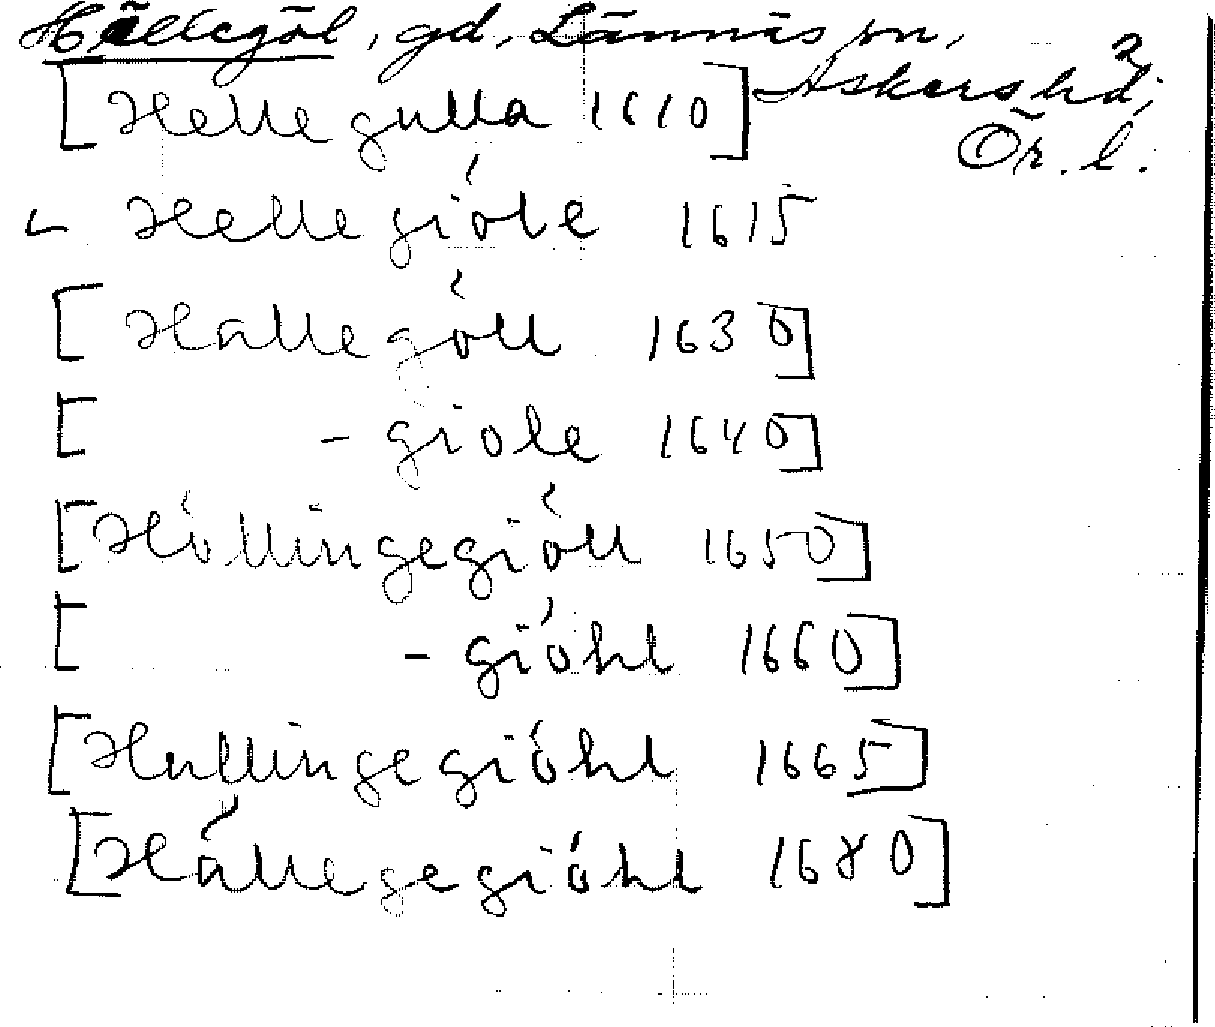 Hällegöl, gd, Lännäs sn,
Askers hd,
[Helle gulla 1610]
Ör. l.
Helle gióle 1615
[Halle góll 1630]
[ - giole 1640]
[Hóllingegióll 1650]
[ - gióhl 1660]
[Hullingegióhl 1665]
[Hállegegióhl 1680]